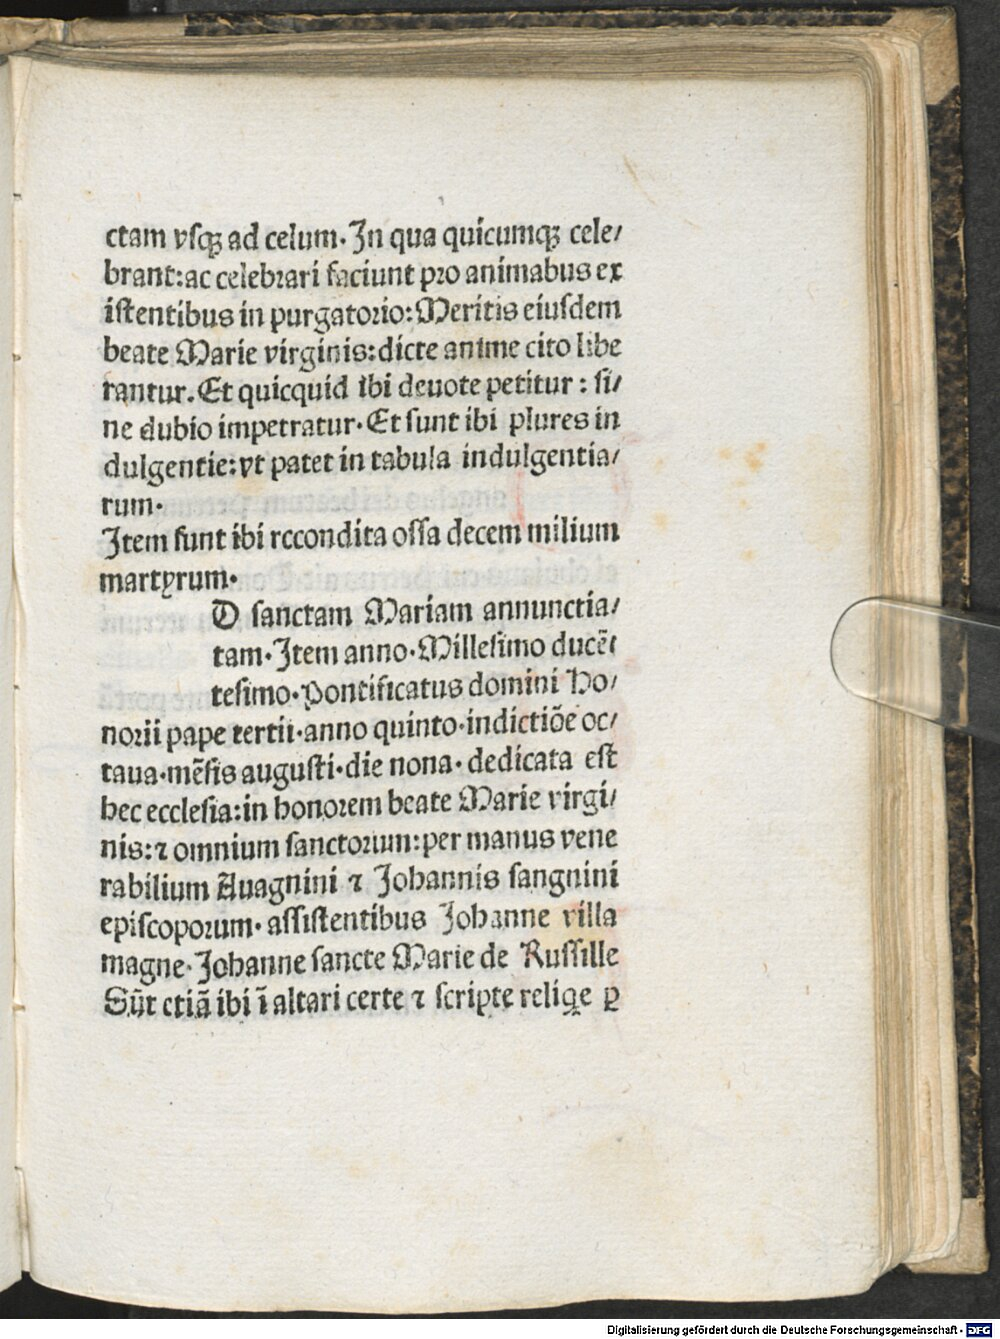 ctam vſqꝫ ad celum. In qua quicumqꝫ cele/
brant: ac celebrari faciunt pro animabus ex
iſtentibus in purgatorio: Meritis eiuſdem
beate Marie virginis: dicte anime cito libe
rantur. Et quicquid ibi deuote petitur: ſi/
ne dubio impetratur. Et ſunt ibi plures in
dulgentie: vt patet in tabula indulgentia/
rum.
Item ſunt ibi rccondita oſſa decem milium
martyrum.
D ſanctam Mariam annunctia/
tam. Item anno. Milleſimo ducē/
teſimo. Pontificatus domini Ho/
norii pape tertii. anno quinto. indictiōe oc/
taua. mēſis auguſti. die nona. dedicata eſt
hec eccleſia: in honorem beate Marie virgi/
nis: ⁊ omnium ſanctorum: per manus vene
rabilium Auagnini ⁊ Johannis ſangnini
epiſcoporum. aſſiſtentibus Johanne villa
magne. Johanne ſancte Marie de Ruſſille
Sūt etiā ibi ī altari certe ⁊ ſcripte reliqe ꝑ
Digitalisierung gefördert durch die Deutsche Forschungsgemeinschaft - DFG